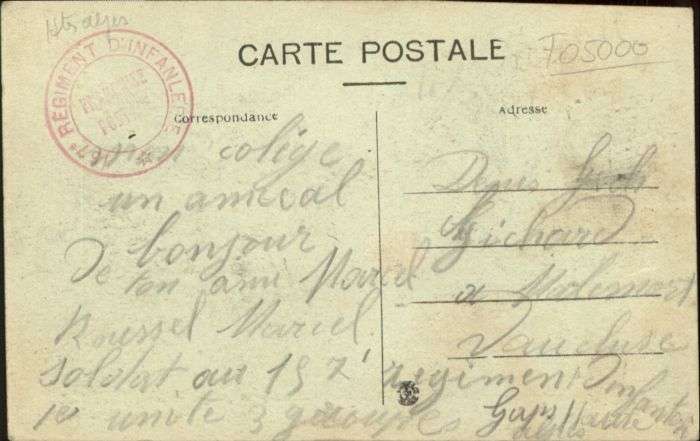 Htes alpes
CARTE POSTALE
T05000
7e RÉGIMENT D'INFANTERIE
Correspondance
Adresse
mon colége
un amical
bonjour
De ton ami Marcel
Roussel Marcel
soldat au 157e regiment Dinfanterie
1e unité 3 groupe
Gaps Haute
alpes
Denis
Michard
a Malemort
Vaucluse